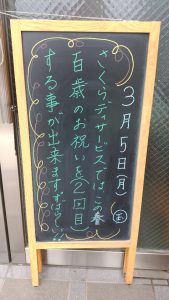 3月5日(月)
さくらデイサービスではこの春
百歳のお祝いを(2回目)
する事が出来ますすばらしい!!